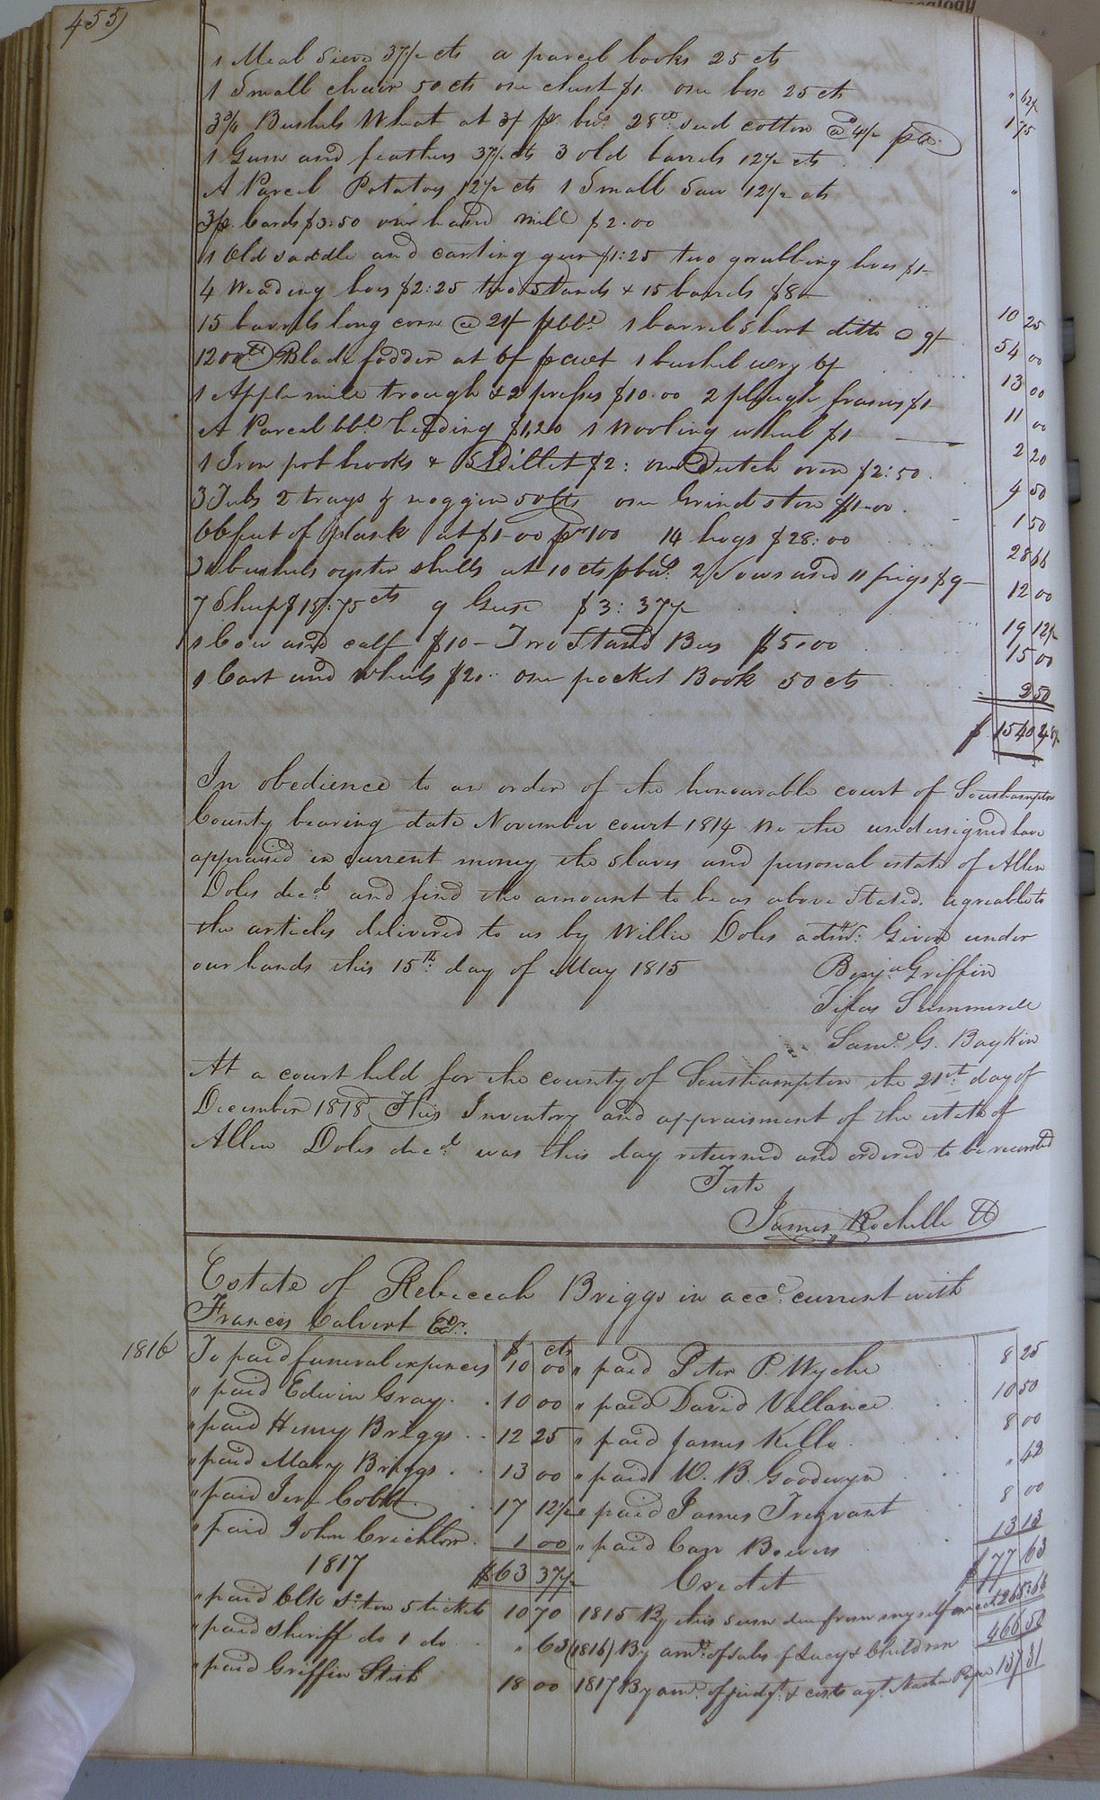 455)
1 Meal Sieve 37½ cts a parcel books 25 cts " 62½
1 Small chair 50 cts one chest $1 one box 25 cts 1 75
3¾ Bushels Wheat at 3/ pr bus. seed cotton @ 4½
1 Gum and feathers 37½ cts 3 old barrels 12½ cts
A Parcel Potatoes 12½ cts 1 Small Saw 12½ cts
3 pr. Cards $3.50 one hand mill $2.00
1 Old saddle and carting gear $1:25 two grubbing hoes $1
4 Weading hoes $2:25 two Stands & 15 barrels $8 10 25
15 barrels long corn @ 21/ p bbl 1 barrel short ditto @ 9/ 54 00
1200 wt Blade fodder at 6/ p cwt 1 bushel 6/ 13 00
1 Apple mill trough & 2 presses $10.00 2 plough frames $1 11 00
A Parcel bbl heading $1,20 1 Wooling wheel $1 2 20
1 Iron pot hooks & Skillet $2: one Dutch oven $2:50. 4 50
3 Tubs 2 trays & noggin 50 cts one Grindstone $1.00. 1 50
66 feet of plank at $1.00 pr 100 14 hogs $28:00 28 66
bushels oyster shells at 10 cts p bus. 2 Sows and 11 pigs $9 12 00
7 Sheep $15:75 cts 9 Geese $3:37½ 19 12½
1 Cow and calf $10 - Two Stand Bees $5.00 15 00
1 Cart and Wheels $20.. one pocket Book 50 cts 50
$ 1540
In obedience to an order of the honourable court of Southampton
County bearing date November court 1814 We the undersigned have
appraised in current money the slaves and personal estate of Allen
Doles decd. and find the amount to be as above Stated. agreable to
the articles delivered to us by Willie Doles admr: Given under
our hands this 15th day of May 1815 Benja Griffin
Silas Summerell
Saml. G. Boykin
At a court held for the county of Southampton the 21st day of
December 1818 This Inventory and appraisment of the estate of
Allen Doles decd. was this day returned and ordered to be recorded
Teste
James Rochelle
Estate of Rebeccah Briggs in acct. current with
Francis Calvert Exr.
$ cts
1816 To paid funeral expences 10 00 " paid Peter P. Wyche 8 25
" paid Edwin Gray. . 10 00 " paid David Vallance 10 50
" paid Henry Briggs . . 12 25 " paid James Kello 8 00
" paid Mary Briggs . . 13 00 " paid W. B. Goodwyn " 42
" paid Cobb 17 12½ " paid James Trezvant 8 00
" paid John Crichlow 1 00 " paid Carr Bowers 13 13
1817 $63 37½ Credit $77 63
" paid Clk 5 tickets 10 70 1815 By this sum due from myself 1265:66
" paid Sheriff do 1 do . " 63 (1816) By amt. of sales of Lucy & Children 466 50
" paid Griffin Stith 18 00 1817 By amt. of judgt. & costs agt. 137 31